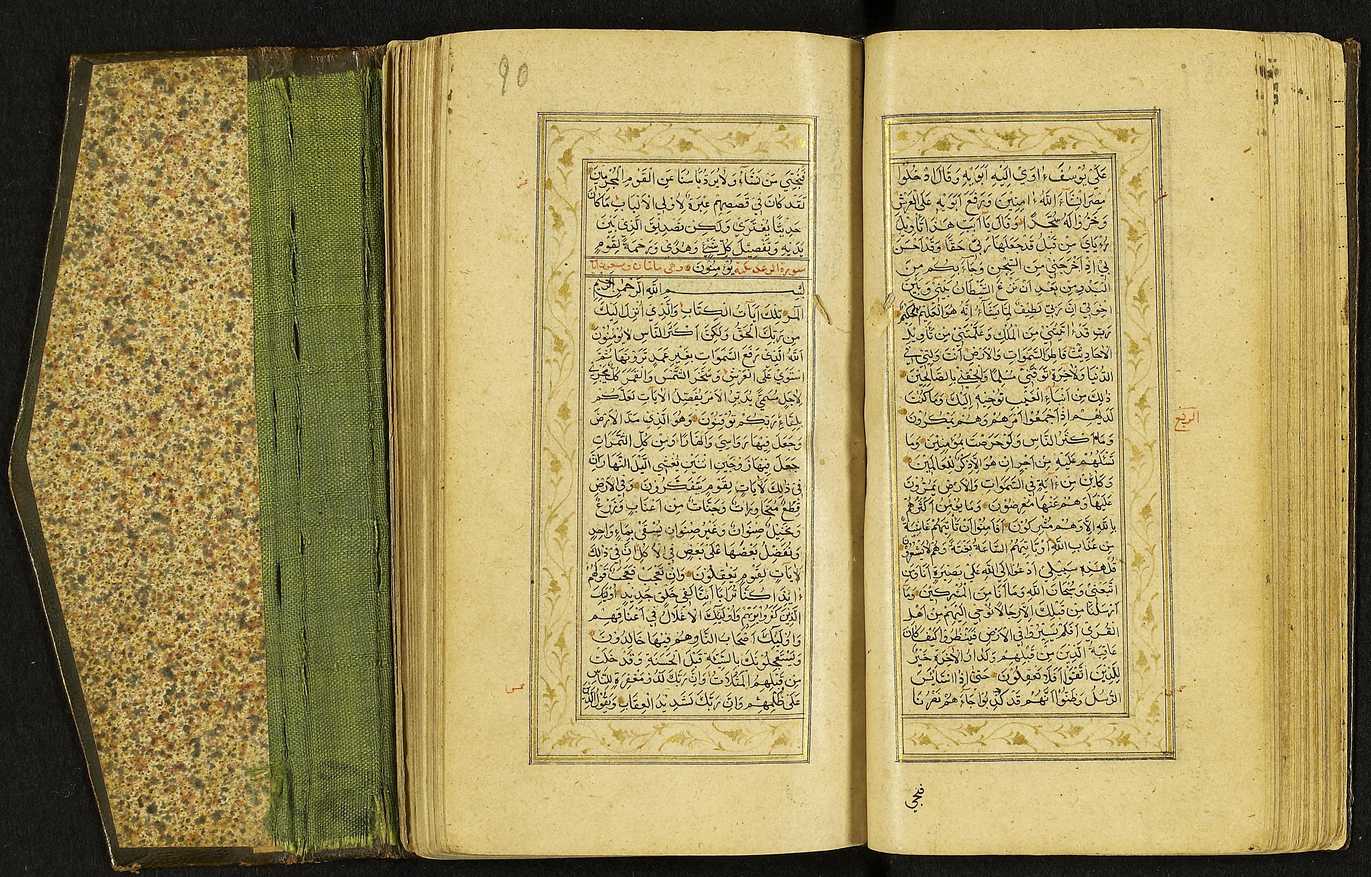 عَلَى يُوسُفَ ءَاوَى اِلَيْهِ اَبَوَيْهِ وَقَالَ ادْخُلُوا
مِصْرَ اِنْ شَاءَ اللهُ ءَامِنِينَ وَرَفَعَ اَبَوَيْهِ عَلَى الْعَرْشِ
وَخَرُّوا لَهُ سُجَّدًا وَقَالَ يَا اَبَتِ هَذَا تَاوِيلُ
رُءْيَاىَ مِنْ قَبْلُ قَدْ جَعَلَهَا رَبِّى حَقًّا وَقَدْ اَحْسَنَ
بِى اِذْ اَخْرَجَنِى مِنَ السِّجْنِ وَجَاءَ بِكُمْ مِنَ
الْبَدْوِ مِنْ بَعْدِ اَنْ نَزَغَ الشَّيْطَانُ بَيْنِى وَبَيْنَ
اِخْوَتِى اِنَّ رَبِّى لَطِيفٌ لِمَا يَشَاءُ اِنَّهُ هُوَ الْعَلِيمُ الْحَكِيمُ
رَبِّ قَدْ اٰتَيْتَنِى مِنَ الْمُلْكِ وَعَلَّمْتَنِى مِنْ تَاوِيلِ
الْاَحَادِيثِ فَاطِرَ السَّمَوَاتِ وَالْاَرْضِ اَنْتَ وَلِيِّى فِى
الدُّنْيَا وَالْاٰخِرَةِ تَوَفَّنِى مُسْلِمًا وَاَلْحِقْنِى بِالصَّالِحِينَ
ذَلِكَ مِنْ اَنْبَاءِ الْغَيْبِ نُوحِيهِ اِلَيْكَ وَمَا كُنْتَ
لَدَيْهِمْ اِذْ اَجْمَعُوا اَمْرَهُمْ وَهُمْ يَمْكُرُونَ
وَمَا اَكْثَرُ النَّاسِ وَلَوْ حَرَصْتَ بِمُؤْمِنِينَ وَمَا
تَسْئَلُهُمْ عَلَيْهِ مِنْ اَجْرٍ اِنْ هُوَ اِلَّا ذِكْرٌ لِلْعَالَمِينَ
وَكَاَيِّنْ مِنْ ءَايَةٍ فِى السَّمَوَاتِ وَالْاَرْضِ يَمُرُّونَ
عَلَيْهَا وَهُمْ عَنْهَا مُعْرِضُونَ وَمَا يُؤْمِنُ اَكْثَرُهُمْ
بِاللهِ اِلَّا وَهُمْ مُشْرِكُونَ اَفَاَمِنُوا اَنْ تَاتِيَهُمْ غَاشِيَةٌ
مِنْ عَذَابِ اللهِ اَوْ تَاتِيَهُمُ السَّاعَةُ بَغْتَةً وَهُمْ لَا يَشْعُرُونَ
قُلْ هَذِهِ سَبِيلِى اَدْعُوا اِلَى اللهِ عَلَى بَصِيرَةٍ اَنَا وَمَنِ
اتَّبَعَنِى وَسُبْحَانَ اللهِ وَمَا اَنَا مِنَ الْمُشْرِكِينَ وَمَا
اَرْسَلْنَا مِنْ قَبْلِكَ اِلَّا رِجَالًا نُوحِى اِلَيْهِمْ مِنْ اَهْلِ
الْقُرَى اَفَلَمْ يَسِيرُوا فِى الْاَرْضِ فَيَنْظُرُوا كَيْفَ كَانَ
عَاقِبَةُ الَّذِينَ مِنْ قَبْلِهِمْ وَلَدَارُ الْاٰخِرَةِ خَيْرٌ
لِلَّذِينَ اتَّقَوْا اَفَلَا تَعْقِلُونَ حَتَّى اِذَا اسْتَايْئَسَ
الرُّسُلُ وَظَنُّوا اَنَّهُمْ قَدْ كُذِبُوا جَاءَهُمْ نَصْرُنَا
فنجي
الربع
90
فَنُجِّيَ مَنْ نَشَاءُ وَلَا يُرَدُّ بَاْسُنَا عَنِ الْقَوْمِ الْمُجْرِمِينَ
لَقَدْ كَانَ فِى قَصَصِهِمْ عِبْرَةٌ لِاُولِى الْاَلْبَابِ مَا كَانَ
حَدِيثًا يُفْتَرَى وَلَكِنْ تَصْدِيقَ الَّذِى بَيْنَ
يَدَيْهِ وَتَفْصِيلَ كُلِّ شَىْءٍ وَهُدًى وَرَحْمَةً لِقَوْمٍ
يُؤْمِنُونَ
سورة الرعد مكية
بِسْمِ اللهِ الرَّحْمَنِ الرَّحِيمِ
الٓمٓرٰ تِلْكَ اٰيَاتُ الْكِتَابِ وَالَّذِى اُنْزِلَ اِلَيْكَ
مِنْ رَبِّكَ الْحَقُّ وَلَكِنَّ اَكْثَرَ النَّاسِ لَا يُؤْمِنُونَ
اَللهُ الَّذِى رَفَعَ السَّمَوَاتِ بِغَيْرِ عَمَدٍ تَرَوْنَهَا ثُمَّ
اسْتَوَى عَلَى الْعَرْشِ وَسَخَّرَ الشَّمْسَ وَالْقَمَرَ كُلٌّ يَجْرِى
لِاَجَلٍ مُسَمًّى يُدَبِّرُ الْاَمْرَ يُفَصِّلُ الْاٰيَاتِ لَعَلَّكُمْ
بِلِقَاءِ رَبِّكُمْ تُوقِنُونَ وَهُوَ الَّذِى مَدَّ الْاَرْضَ
وَجَعَلَ فِيهَا رَوَاسِىَ وَاَنْهَارًا وَمِنْ كُلِّ الثَّمَرَاتِ
جَعَلَ فِيهَا زَوْجَيْنِ اثْنَيْنِ يُغْشِى الَّيْلَ النَّهَارَ اِنَّ
فِى ذَلِكَ لَاٰيَاتٍ لِقَوْمٍ يَتَفَكَّرُونَ وَفِى الْاَرْضِ
قِطَعٌ مُتَجَاوِرَاتٌ وَجَنَّاتٌ مِنْ اَعْنَابٍ وَزَرْعٌ
وَنَخِيلٌ صِنْوَانٌ وَغَيْرُ صِنْوَانٍ يُسْقَى بِمَاءٍ وَاحِدٍ
وَنُفَضِّلُ بَعْضَهَا عَلَى بَعْضٍ فِى الْاُكُلِ اِنَّ فِى ذَلِكَ
لَاٰيَاتٍ لِقَوْمٍ يَعْقِلُونَ وَاِنْ تَعْجَبْ فَعَجَبٌ قَوْلُهُمْ
ءَاِذَا كُنَّا تُرَابًا اَئِنَّا لَفِى خَلْقٍ جَدِيدٍ اُولَئِكَ
الَّذِينَ كَفَرُوا بِرَبِّهِمْ وَاُولَئِكَ الْاَغْلَالُ فِى اَعْنَاقِهِمْ
وَاُولَئِكَ اَصْحَابُ النَّارِ هُمْ فِيهَا خَالِدُونَ
وَيَسْتَعْجِلُونَكَ بِالسَّيِّئَةِ قَبْلَ الْحَسَنَةِ وَقَدْ خَلَتْ
مِنْ قَبْلِهِمُ الْمَثُلَاتُ وَاِنَّ رَبَّكَ لَذُو مَغْفِرَةٍ لِلنَّاسِ
عَلَى ظُلْمِهِمْ وَاِنَّ رَبَّكَ لَشَدِيدُ الْعِقَابِ وَيَقُولُ الَّذِينَ